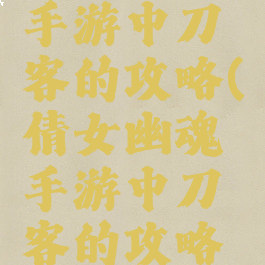 手游中刀
客的攻略(
倩女幽魂
手游中刀
客的攻略